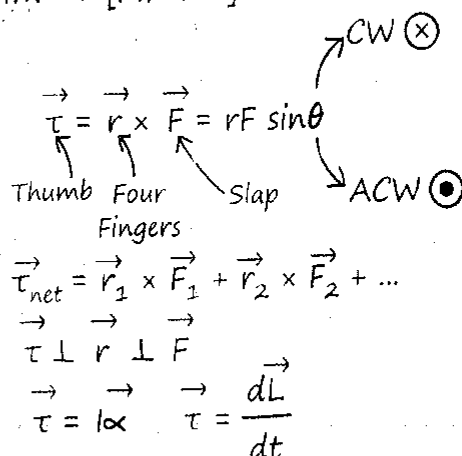 CW ⊗
τ⃗ = r⃗ × F⃗ = rF sinθ
ACW ⊙
Thumb Four Fingers Slap
τ⃗net = r⃗₁ × F⃗₁ + r⃗₂ × F⃗₂ + ...
τ⃗ ⊥ r⃗ ⊥ F⃗
τ⃗ = Iα⃗ τ⃗ = dL⃗/dt